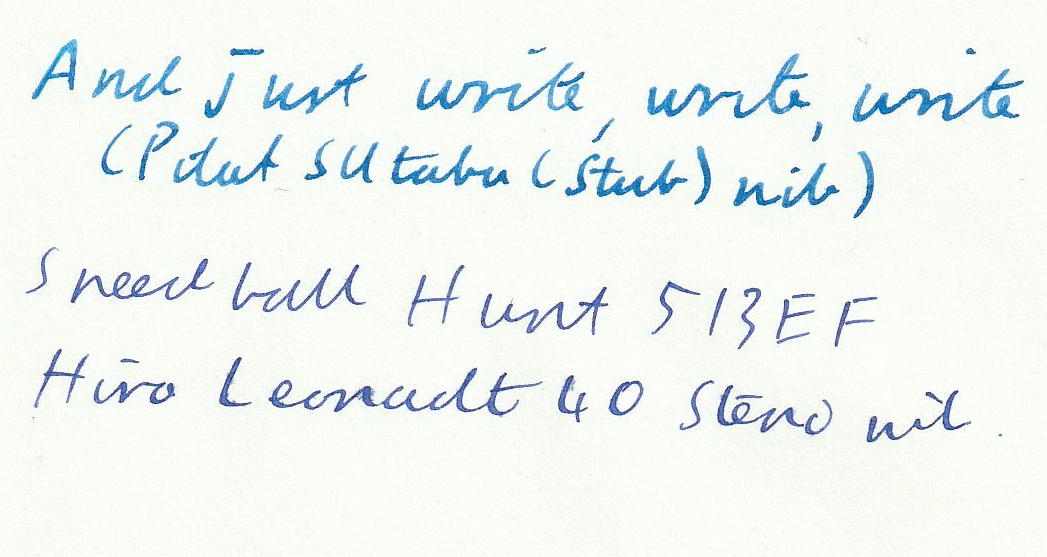 And just write, write, write
(Pilot SUtabu (Stub) nib)
Speedball Hunt 513EF
Hiro Leonardt 40 Steno nib.